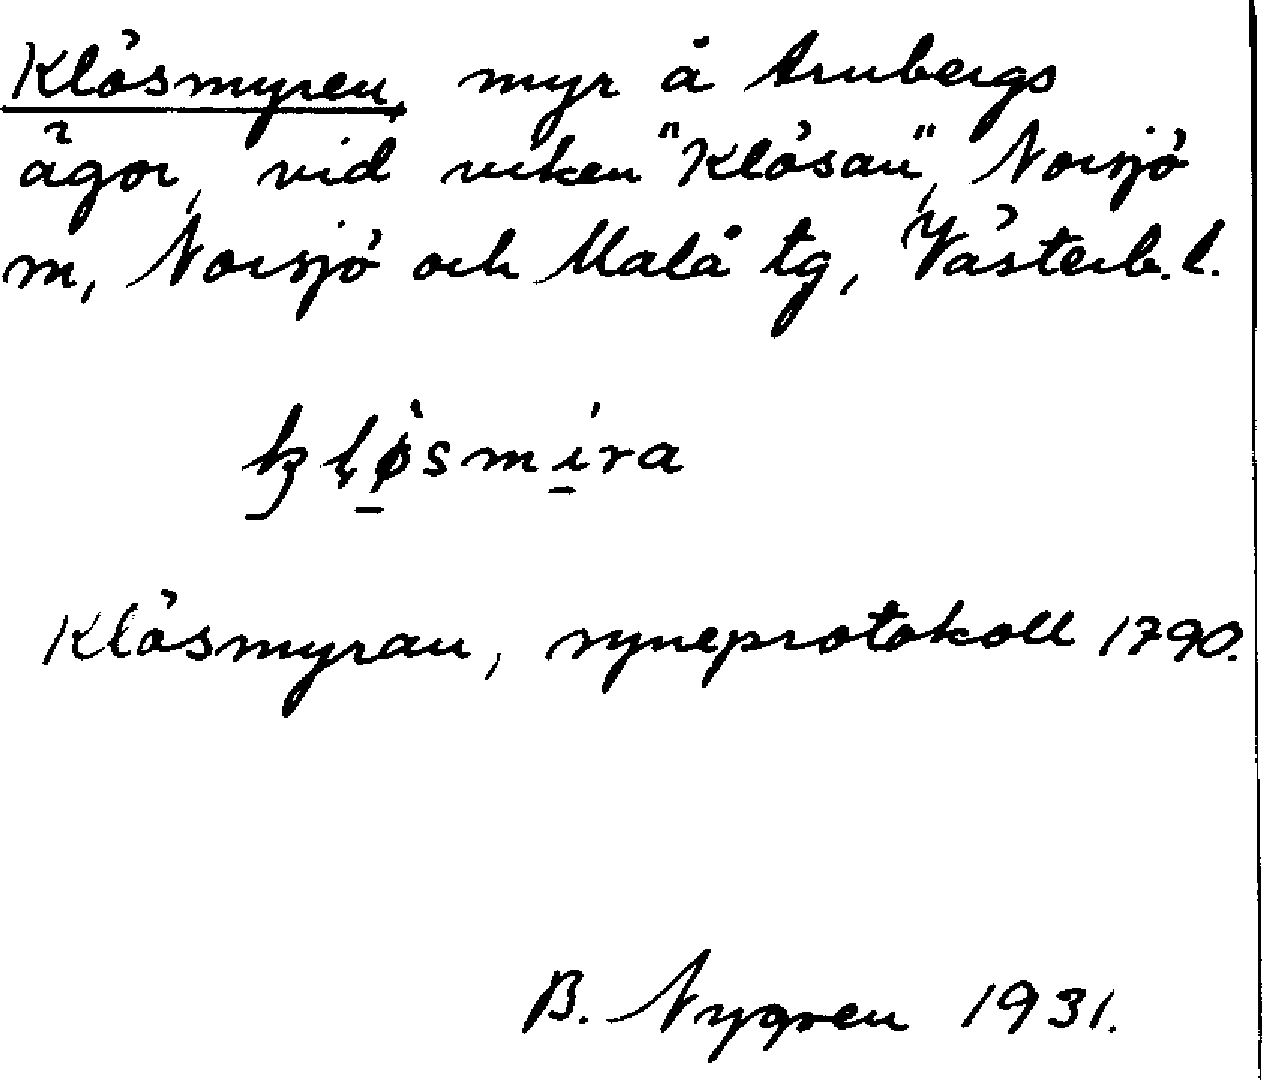 Klösmyren, myr å Arnbergs
ägor, vid viken "Klösan", Norsjö
m, Norsjö och Malå tg, Västerb. l.
Klösmyran, syneprotokoll 1790.
B. Nygren 1931.